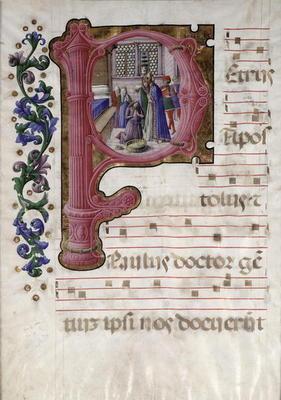 PEtrus
apos
tolus et
Paulus doctor gē
tiuz ipsi nos docuerūt